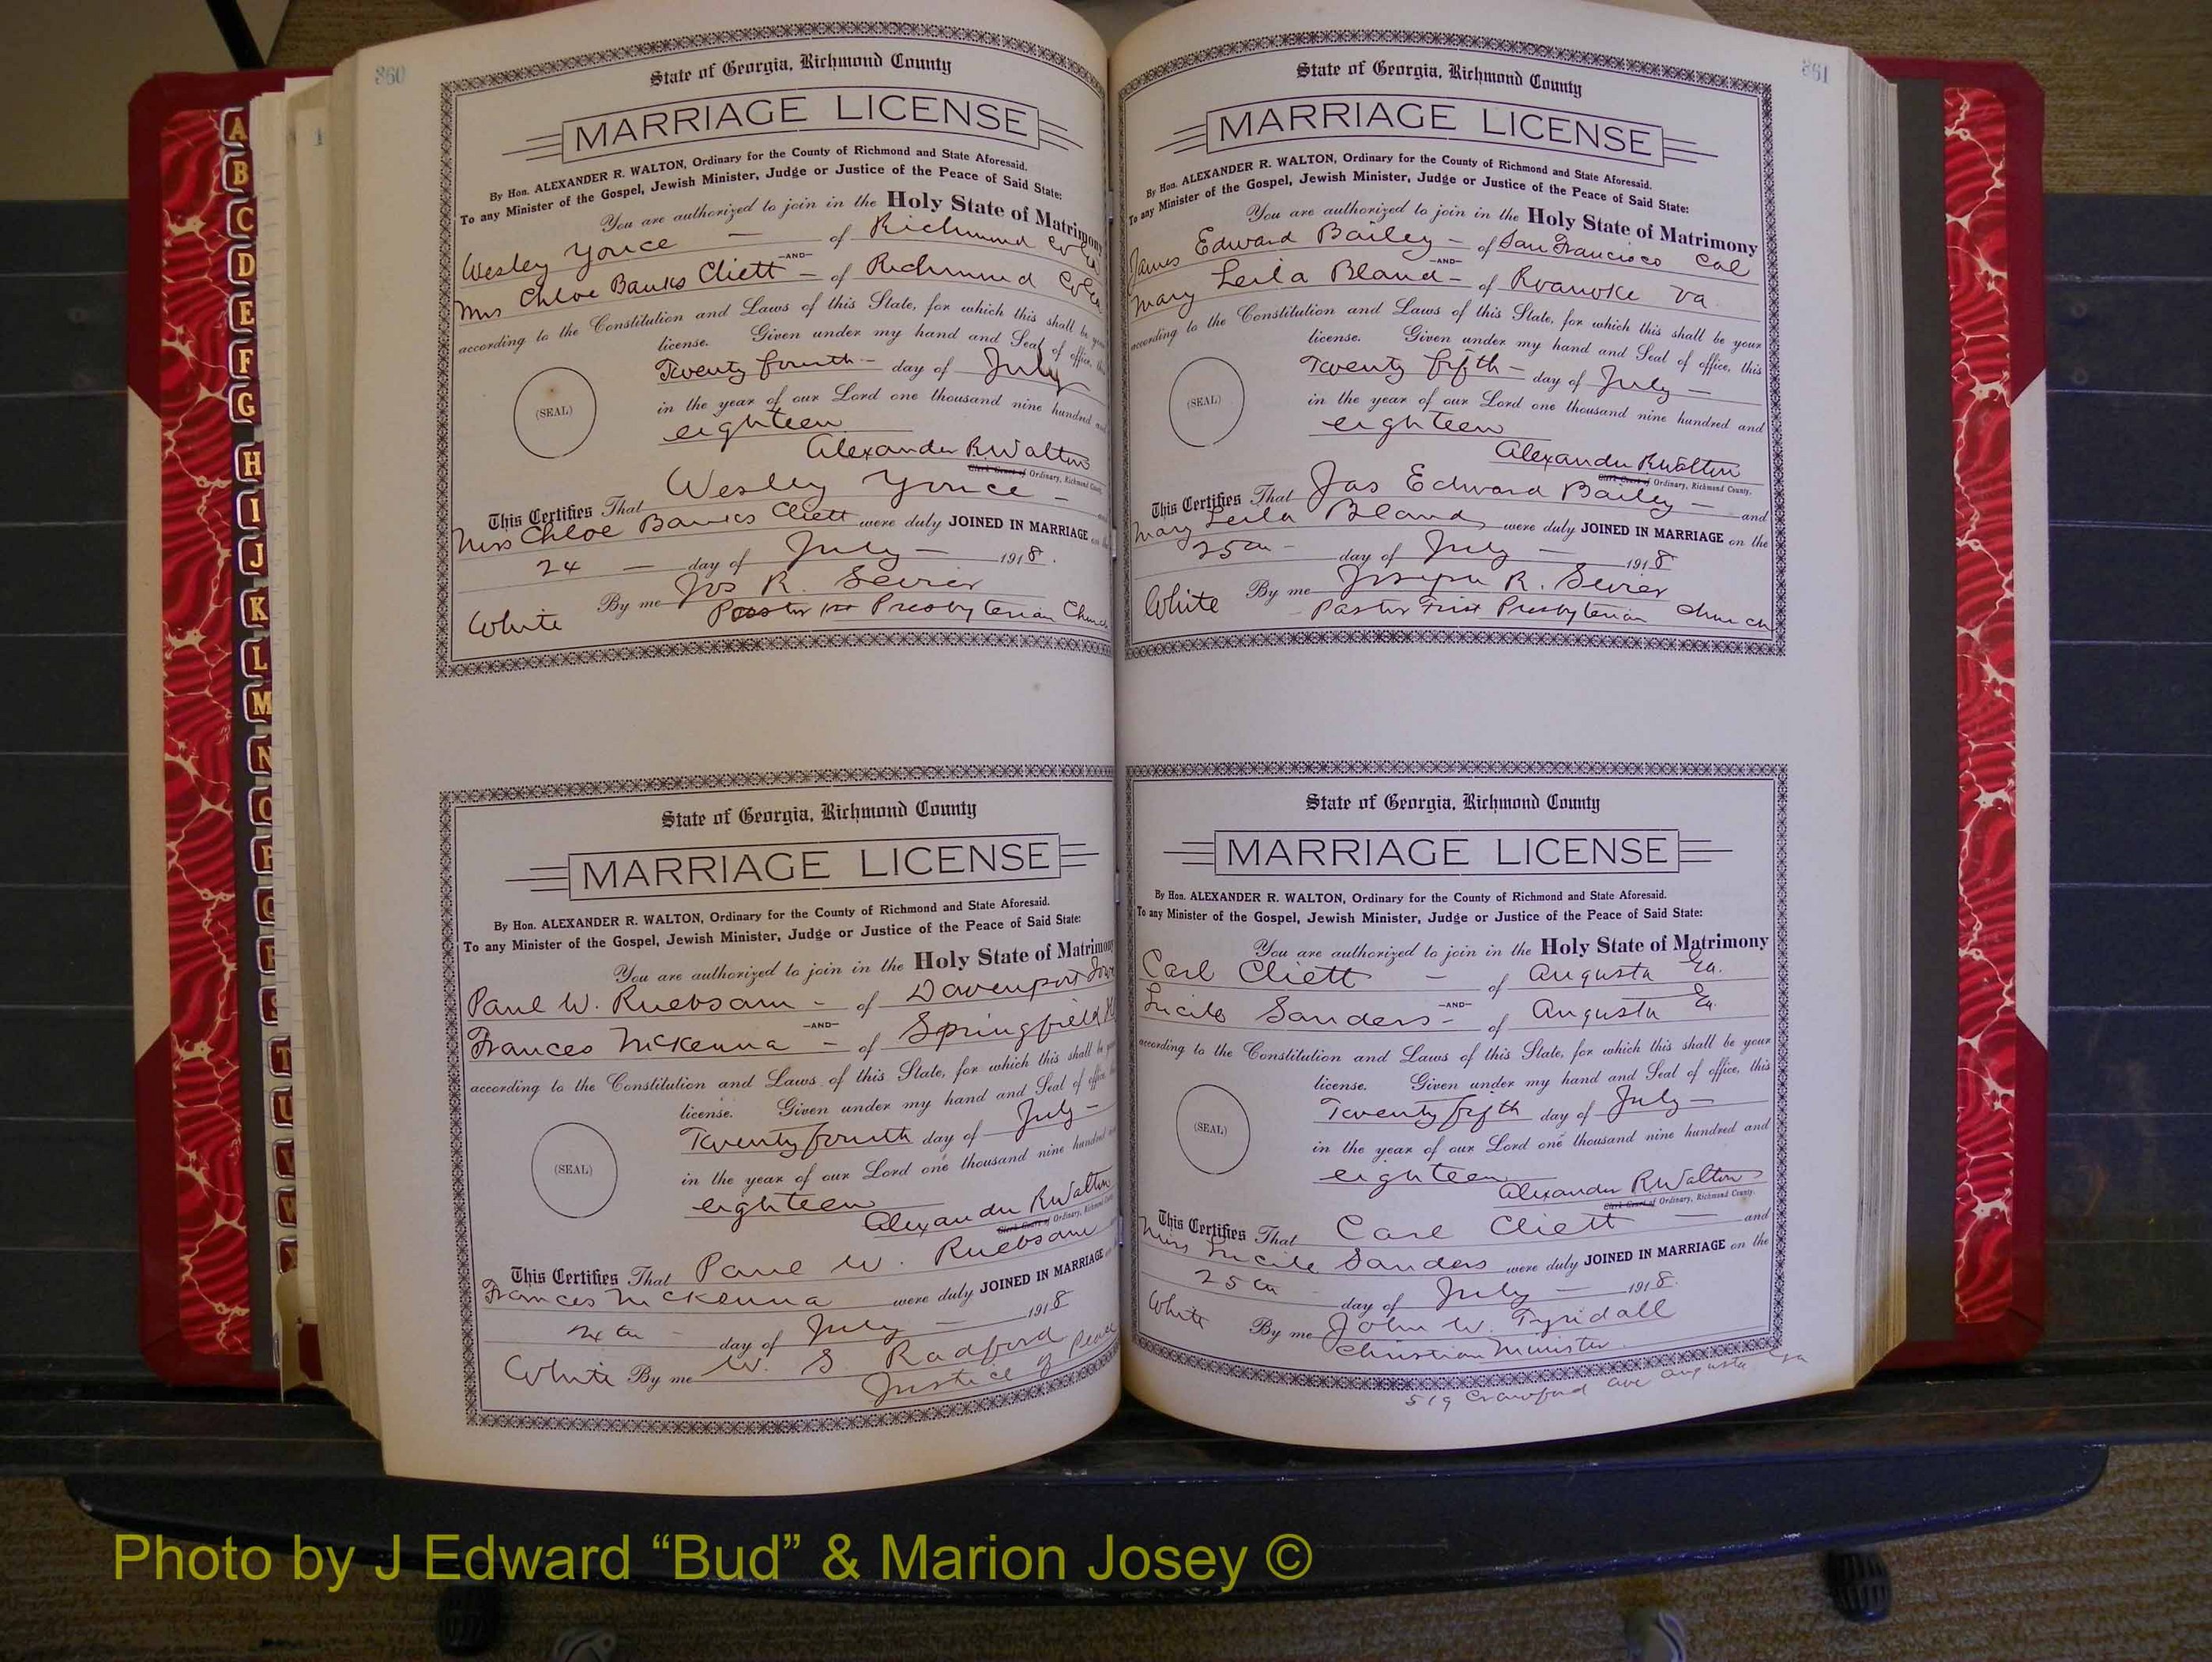 360
State of Georgia, Richmond County
MARRIAGE LICENSE
By Hon. ALEXANDER R. WALTON, Ordinary for the County of Richmond and State Aforesaid.
To any Minister of the Gospel, Jewish Minister, Judge or Justice of the Peace of Said State:
You are authorized to join in the Holy State of Matrimony
Wesley Youce — of Richmond Co Ga
—AND—
Mrs Chloe Banks Cliett — of Richmond Co Ga
according to the Constitution and Laws of this State, for which this shall be your
license. Given under my hand and Seal of office, this
Twenty fourth — day of July
(SEAL)
in the year of our Lord one thousand nine hundred and
eighteen
Alexander R Walton
Clerk Court of Ordinary, Richmond County.
This Certifies That Wesley Youce —
Mrs Chloe Banks Cliett were duly JOINED IN MARRIAGE on the
24 — day of July — 1918.
White By me Jos R. Sevier
Pastor 1st Presbyterian Church
State of Georgia, Richmond County
MARRIAGE LICENSE
By Hon. ALEXANDER R. WALTON, Ordinary for the County of Richmond and State Aforesaid.
To any Minister of the Gospel, Jewish Minister, Judge or Justice of the Peace of Said State:
You are authorized to join in the Holy State of Matrimony
Paul W. Ruebsam — of Davenport Iowa
—AND—
Frances McKenna — of Springfield
according to the Constitution and Laws of this State, for which this shall be your
license. Given under my hand and Seal of office
Twenty fourth day of July —
(SEAL)
in the year of our Lord one thousand nine hundred
eighteen
Alexander R Walton
Clerk Court of Ordinary, Richmond County
This Certifies That Paul W. Ruebsam
Frances McKenna were duly JOINED IN MARRIAGE
24 th — day of July — 1918
White By me W. S. Radford
Justice of Peace
361
State of Georgia, Richmond County
MARRIAGE LICENSE
By Hon. ALEXANDER R. WALTON, Ordinary for the County of Richmond and State Aforesaid.
To any Minister of the Gospel, Jewish Minister, Judge or Justice of the Peace of Said State:
You are authorized to join in the Holy State of Matrimony
James Edward Bailey — of San Francisco Cal
—AND—
Mary Leila Bland — of Roanoke Va
according to the Constitution and Laws of this State, for which this shall be your
license. Given under my hand and Seal of office, this
Twenty fifth — day of July —
(SEAL)
in the year of our Lord one thousand nine hundred and
eighteen
Alexander R Walton
Clerk Court of Ordinary, Richmond County.
This Certifies That Jas Edward Bailey — and
Mary Leila Bland were duly JOINED IN MARRIAGE on the
25 th — day of July — 1918
White By me Joseph R. Sevier
Pastor First Presbyterian Church
State of Georgia, Richmond County
MARRIAGE LICENSE
By Hon. ALEXANDER R. WALTON, Ordinary for the County of Richmond and State Aforesaid.
To any Minister of the Gospel, Jewish Minister, Judge or Justice of the Peace of Said State:
You are authorized to join in the Holy State of Matrimony
Carl Cliett — of Augusta Ga.
—AND—
Lucile Sanders — of Augusta Ga.
according to the Constitution and Laws of this State, for which this shall be your
license. Given under my hand and Seal of office, this
Twenty fifth day of July —
(SEAL)
in the year of our Lord one thousand nine hundred and
eighteen
Alexander R Walton
Clerk Court of Ordinary, Richmond County.
This Certifies That Carl Cliett — and
Miss Lucile Sanders were duly JOINED IN MARRIAGE on the
25 th day of July — 1918.
White By me John W. Tyndall
Christian Minister.
519 Crawford ave Augusta Ga
A
B
C
D
E
F
G
H
I
J
K
L
M
N
O
P
Q
R
S
T
U
V
W
Photo by J Edward “Bud” & Marion Josey ©